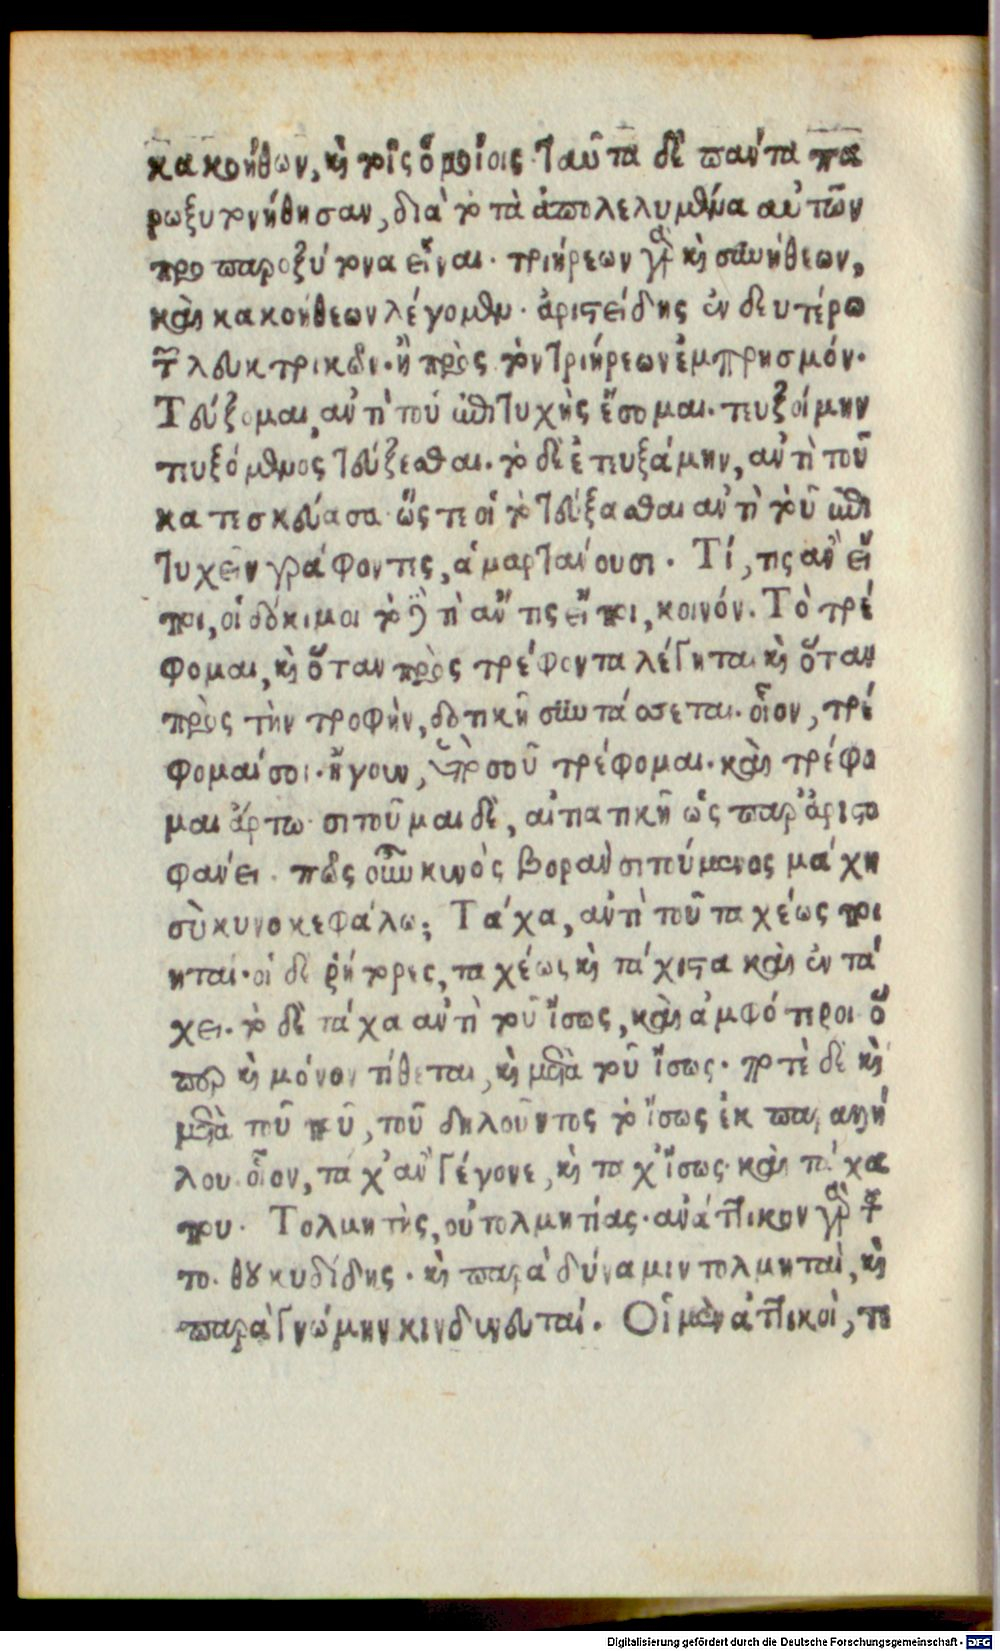 κακοήθων, καὶ τοῖς ὁμοίοις. Ταῦτα δὲ πάντα πα
ρωξυτονήθησαν, διὰ τὸ τὰ ἀπολελυμένα αὐτῶν
προπαροξύτονα εἶναι. τριήρεων γὰρ καὶ συνήθεων,
καὶ κακοήθεων λέγομεν. ἀριστείδης ἐν δευτέρω
τῶν λευκτρικῶν. ἢ πρὸς τὸν τριήρεων ἐμπρησμόν.
Τεύξομαι, αντὶ τού ἐπιτυχὴς ἔσομαι. τευξοίμην
τευξόμενος τεύξεσθαι. τὸ δὲ ἐτευξάμην, αντὶ τοῦ
κατεσκεύασα. ὥς τε οἱ τὸ τεύξασθαι αντὶ τοῦ ἐπι
τυχεῖν γράφοντες, ἁμαρτάνουσι. Τί, τις αν εἴ
ποι, οἱ δόκιμοι τὸ δὲ τὶ αν τις εἴποι, κοινόν. Τὸ τρέ
φομαι, καὶ ὅταν πρὸς τρέφοντα λέγηται καὶ ὅταν
πρὸς τὴν τροφὴν, δοτικῆ συντάσσεται. οἷον, τρέ
φομαί σοι. ἤγουν, ὑπὸ σοῦ τρέφομαι. καὶ τρέφο
μαι άρτω. σιτοῦμαι δὲ, αἰτιατικῆ ὡς παρ' ἀριστο
φανει. πῶς οῦν κυνὸς βορὰν σιτούμενος μάχη
σὺ κυνοκεφάλω; Τάχα, αντὶ τοῦ ταχέως ποι
ηταί. οἱ δὲ ῥήτορες, ταχέως καὶ τάχιστα καὶ ἐν τά
χει. τὸ δὲ τάχα αντὶ τοῦ ἴσως, καὶ ἀμφότεροι. ὅ
περ καὶ μόνον τίθεται, καὶ μετὰ τοῦ ἴσως. ποτὲ δὲ καὶ
μετὰ τοῦ που, τοῦ δηλοῦντος τὸ ἴσως ἐκ παραλλή
λου. οἷον, τάχ' αν γέγονε, καὶ ταχ' ἴσως. καὶ τάχα
που. Τολμητὴς, οὐ τολμητίας. ανάττικον γὰρ τοῦ
το. θουκυδίδης. καὶ παρὰ δύναμιν τολμηταὶ, καὶ
παρὰ γνώμην κινδυνευταί. Οἱ μὲν ἀττικοὶ, τε
Digitalisierung gefördert durch die Deutsche Forschungsgemeinschaft - DFG